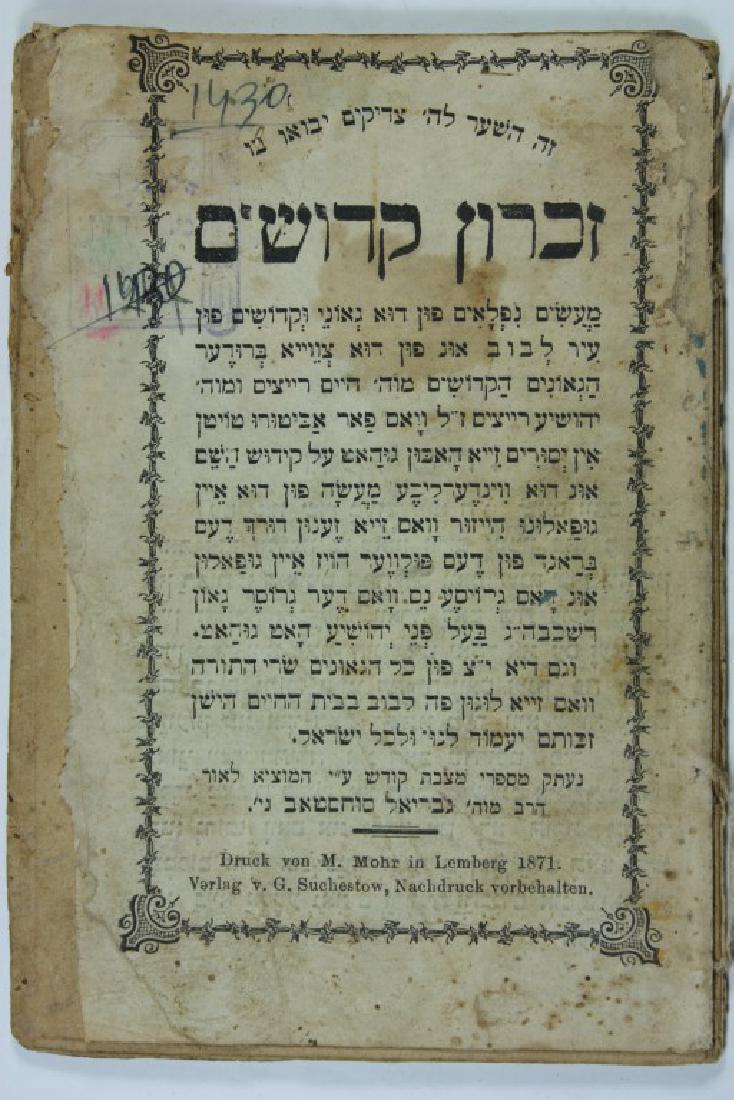 1430
זה השער לה׳ צדיקים יבואו בו
זכרון קדושים
1430
מַעֲשִׂים נִפְלָאִים פון דוא גְאוֹנֵי וּקְדוֹשִׁים פון
עִיר לְבוּב אוג פון דוא צְוַוייא בְּרוּדֶער
הַגְאוֹנִים הַקְדוֹשִׁים מוה׳ חיים רייצים ומוה׳
יהושיע רייצים ז״ל וָואס פַאר אַבִּיטוּרוּ טויטן
אִין יְסוּרִים זֵייא הָאבּוּן גוּהאט על קִידוּשׁ הַשֵׁם
אוּג דוא ווינדֶערְליכֶע מַעֲשֶׂה פון דוא אֵיין
גוּפאלוּנוּ הייזור וָואס זֵייא זֶענוּן דורך דֶעם
בְּרַאנד פון דֶעם פּוּלְווֶער הויז אֵיין גוּפַאלוּן
אוּג דָאס גְרוֹיסֶע נֵס. וָואס דֶער גְרוֹסֶר גָאוֹן
רשכבה״ג בַּעַל פְּנֵי יְהוֹשֻׁיעַ הָאט גוּהַאט.
וגם דיא י״צ פון כל הגאונים שׂרי התורה
וואס זייא לוגון פה לבוב בבית החיים הישן
זכותם יעמוד לנו ולכל ישׂראל.
נעתק מספרי מצבת קודש ע״י המוציא לאור
הרב מוה׳ גבריאל סוחסטאב ני׳.
Druck von M. Mohr in Lemberg 1871.
Verlag v. G. Suchestow, Nachdruck vorbehalten.